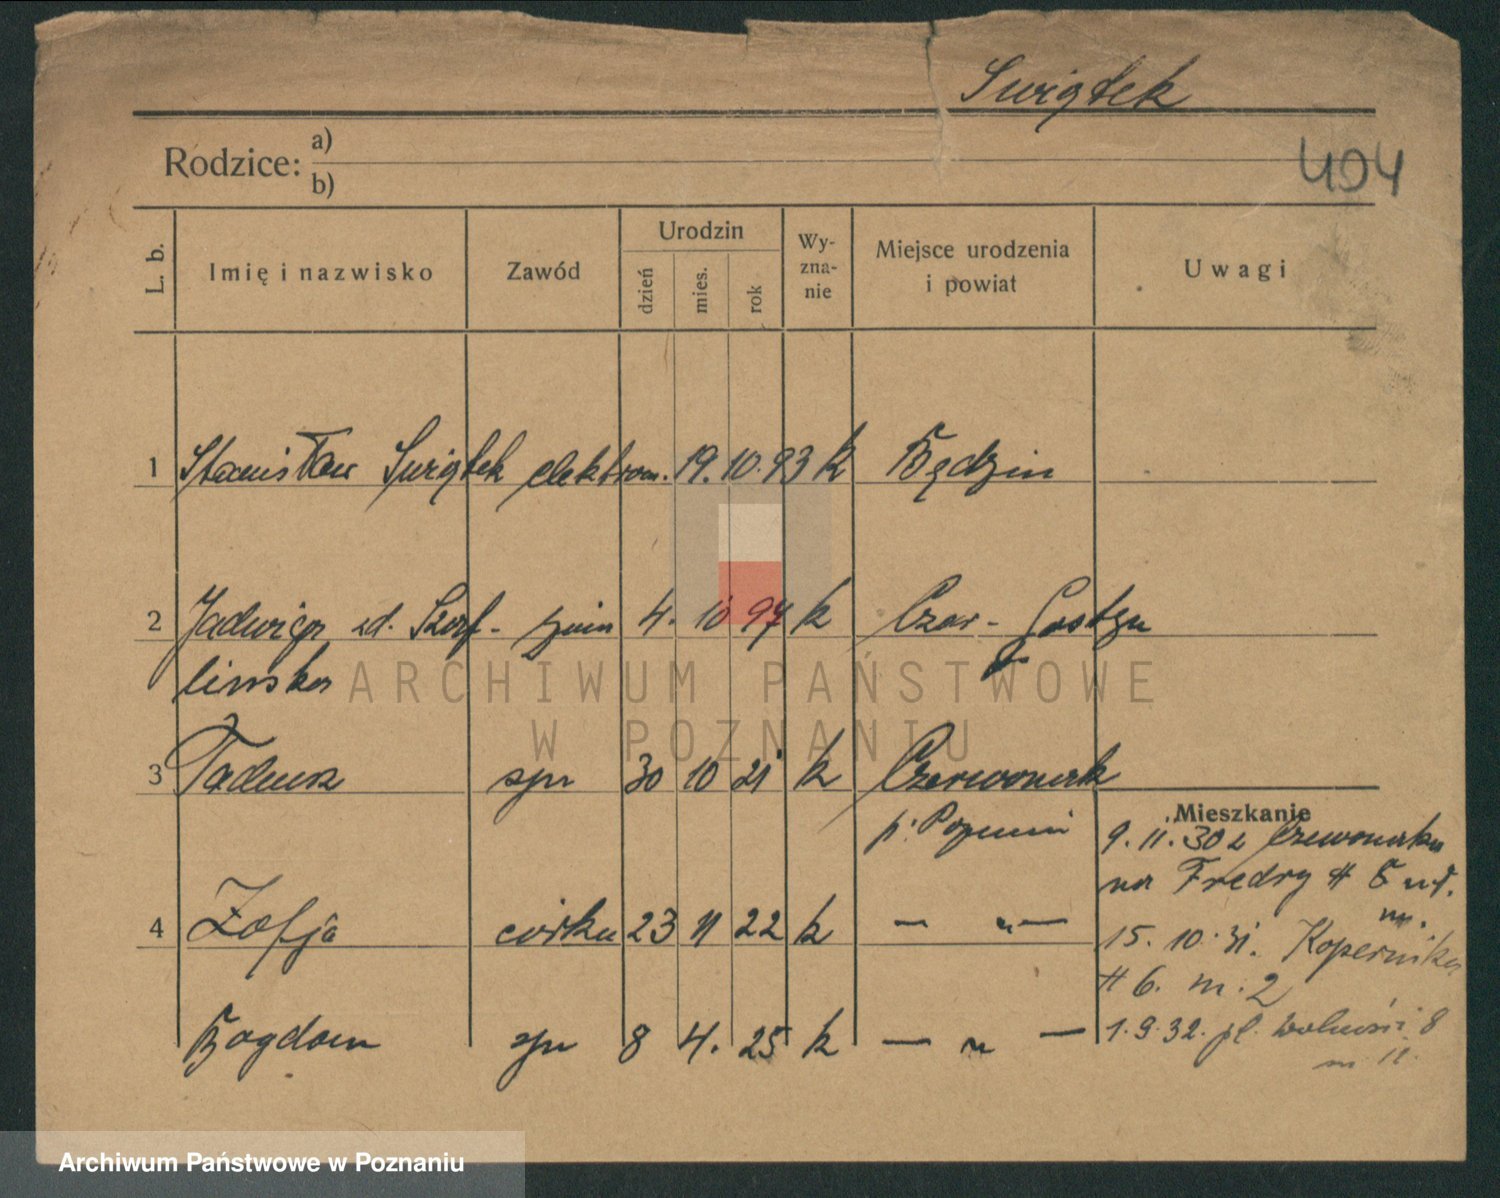 Swiątek
Rodzice: a)
b)
404
L. b. Imię i nazwisko Zawód Urodzin dzień mies. rok Wy-zna-nie Miejsce urodzenia i powiat Uwagi
1 Stanisław Swiątek elektrom. 19. 10. 93 k Będzin
2 Jadwiga zd. Szaf- 4. 10 97 k Czar- Gostyn
linska
ARCHIWUM PAŃSTWOWE
W POZNANIU
3 Tadeusz syn 30 10 21 k Czerwonak
p. Poznań
Mieszkanie
9. 11. 30 z Czerwonaka
na Fredry # 5 
m.
4 Zofja córka 23 11 22 k — „ —
15. 10. 31. Kopernika
# 6. m. 2
Bogdan syn 8 4. 25 k — „ —
1. 9. 32. pl. Wolności 8
m 11.
Archiwum Państwowe w Poznaniu